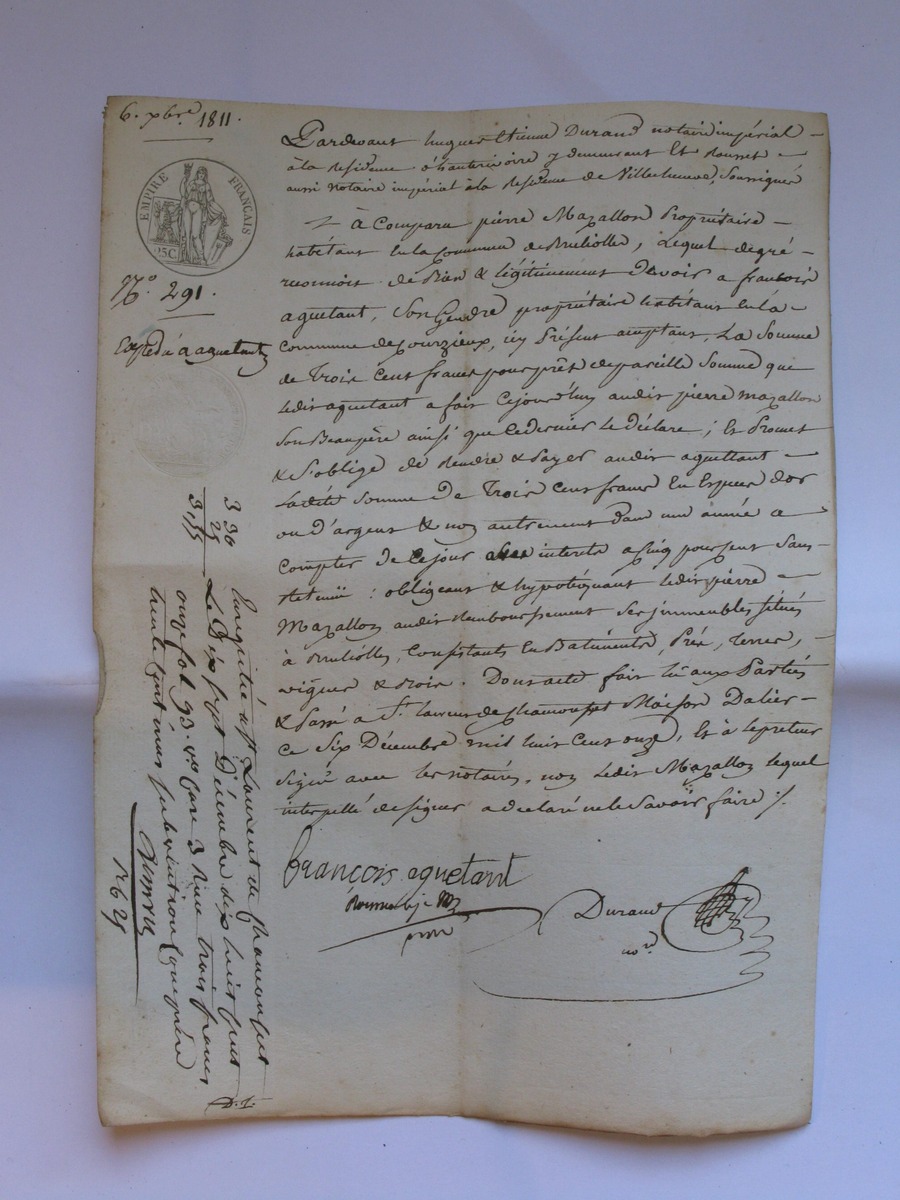 6. xbre 1811.
EMPIRE FRANÇAIS
25C.
N.o 291.
Expédié à aquetant
Pardevant hugues Etienne Durand notaire impérial
à la Residence d'hauterivoire y demeurant Et Rousset
aussi notaire impérial à la Residence de Villecheneve, Soussignés
à Comparu pierre Mazallon Propriétaire
habitant En la Commune de Brulliolles, Lequel de gré
reconnoit de Bien & légitimement devoir a francois
aquetant, Son Gendre propriétaire habitant En la
Commune de Courzieux, icy Présent acceptant, La Somme
de Trois Cent francs pour prêt de pareille Somme que
Ledit aquetant a fait Cejourd'huy audit pierre mazallon
Son Beaupère ainsi que ce dernier Le déclare ; Et Promet
& S'oblige de Rendre & Payer audit aquettant
Ladite Somme De Trois Cent francs En Espèces d'or
ou d'argent & non autrement dans une année a
Compter de Ce jour interets a Cinq pour Cent Sans
Retenue : obligeant & hypotéquant Ledit pierre
Mazallon audit Remboursement Ses immeubles Situés
à Brulliolles, Consistants En Batiments, Prés, Terres,
vignes & Bois. Dont acte fait lû aux Parties
& Passé a St. Laurent de Chamousset Maison Dalier
Ce Six Décembre mil huit Cent onze, Et à le preteur
Signé avec les notaires, non Ledit Mazallon lequel
interpellé de Signer a déclaré ne le Savoir faire ./.
françois aquetant
Durand
nore
3 30
3,55
Enregistré à St Laurent de Chamousset
Le Dix Sept Décembre dix huit cent
onze fol. 93. vo Case 3 trois francs
trente cinq subvention comprise
D. F.